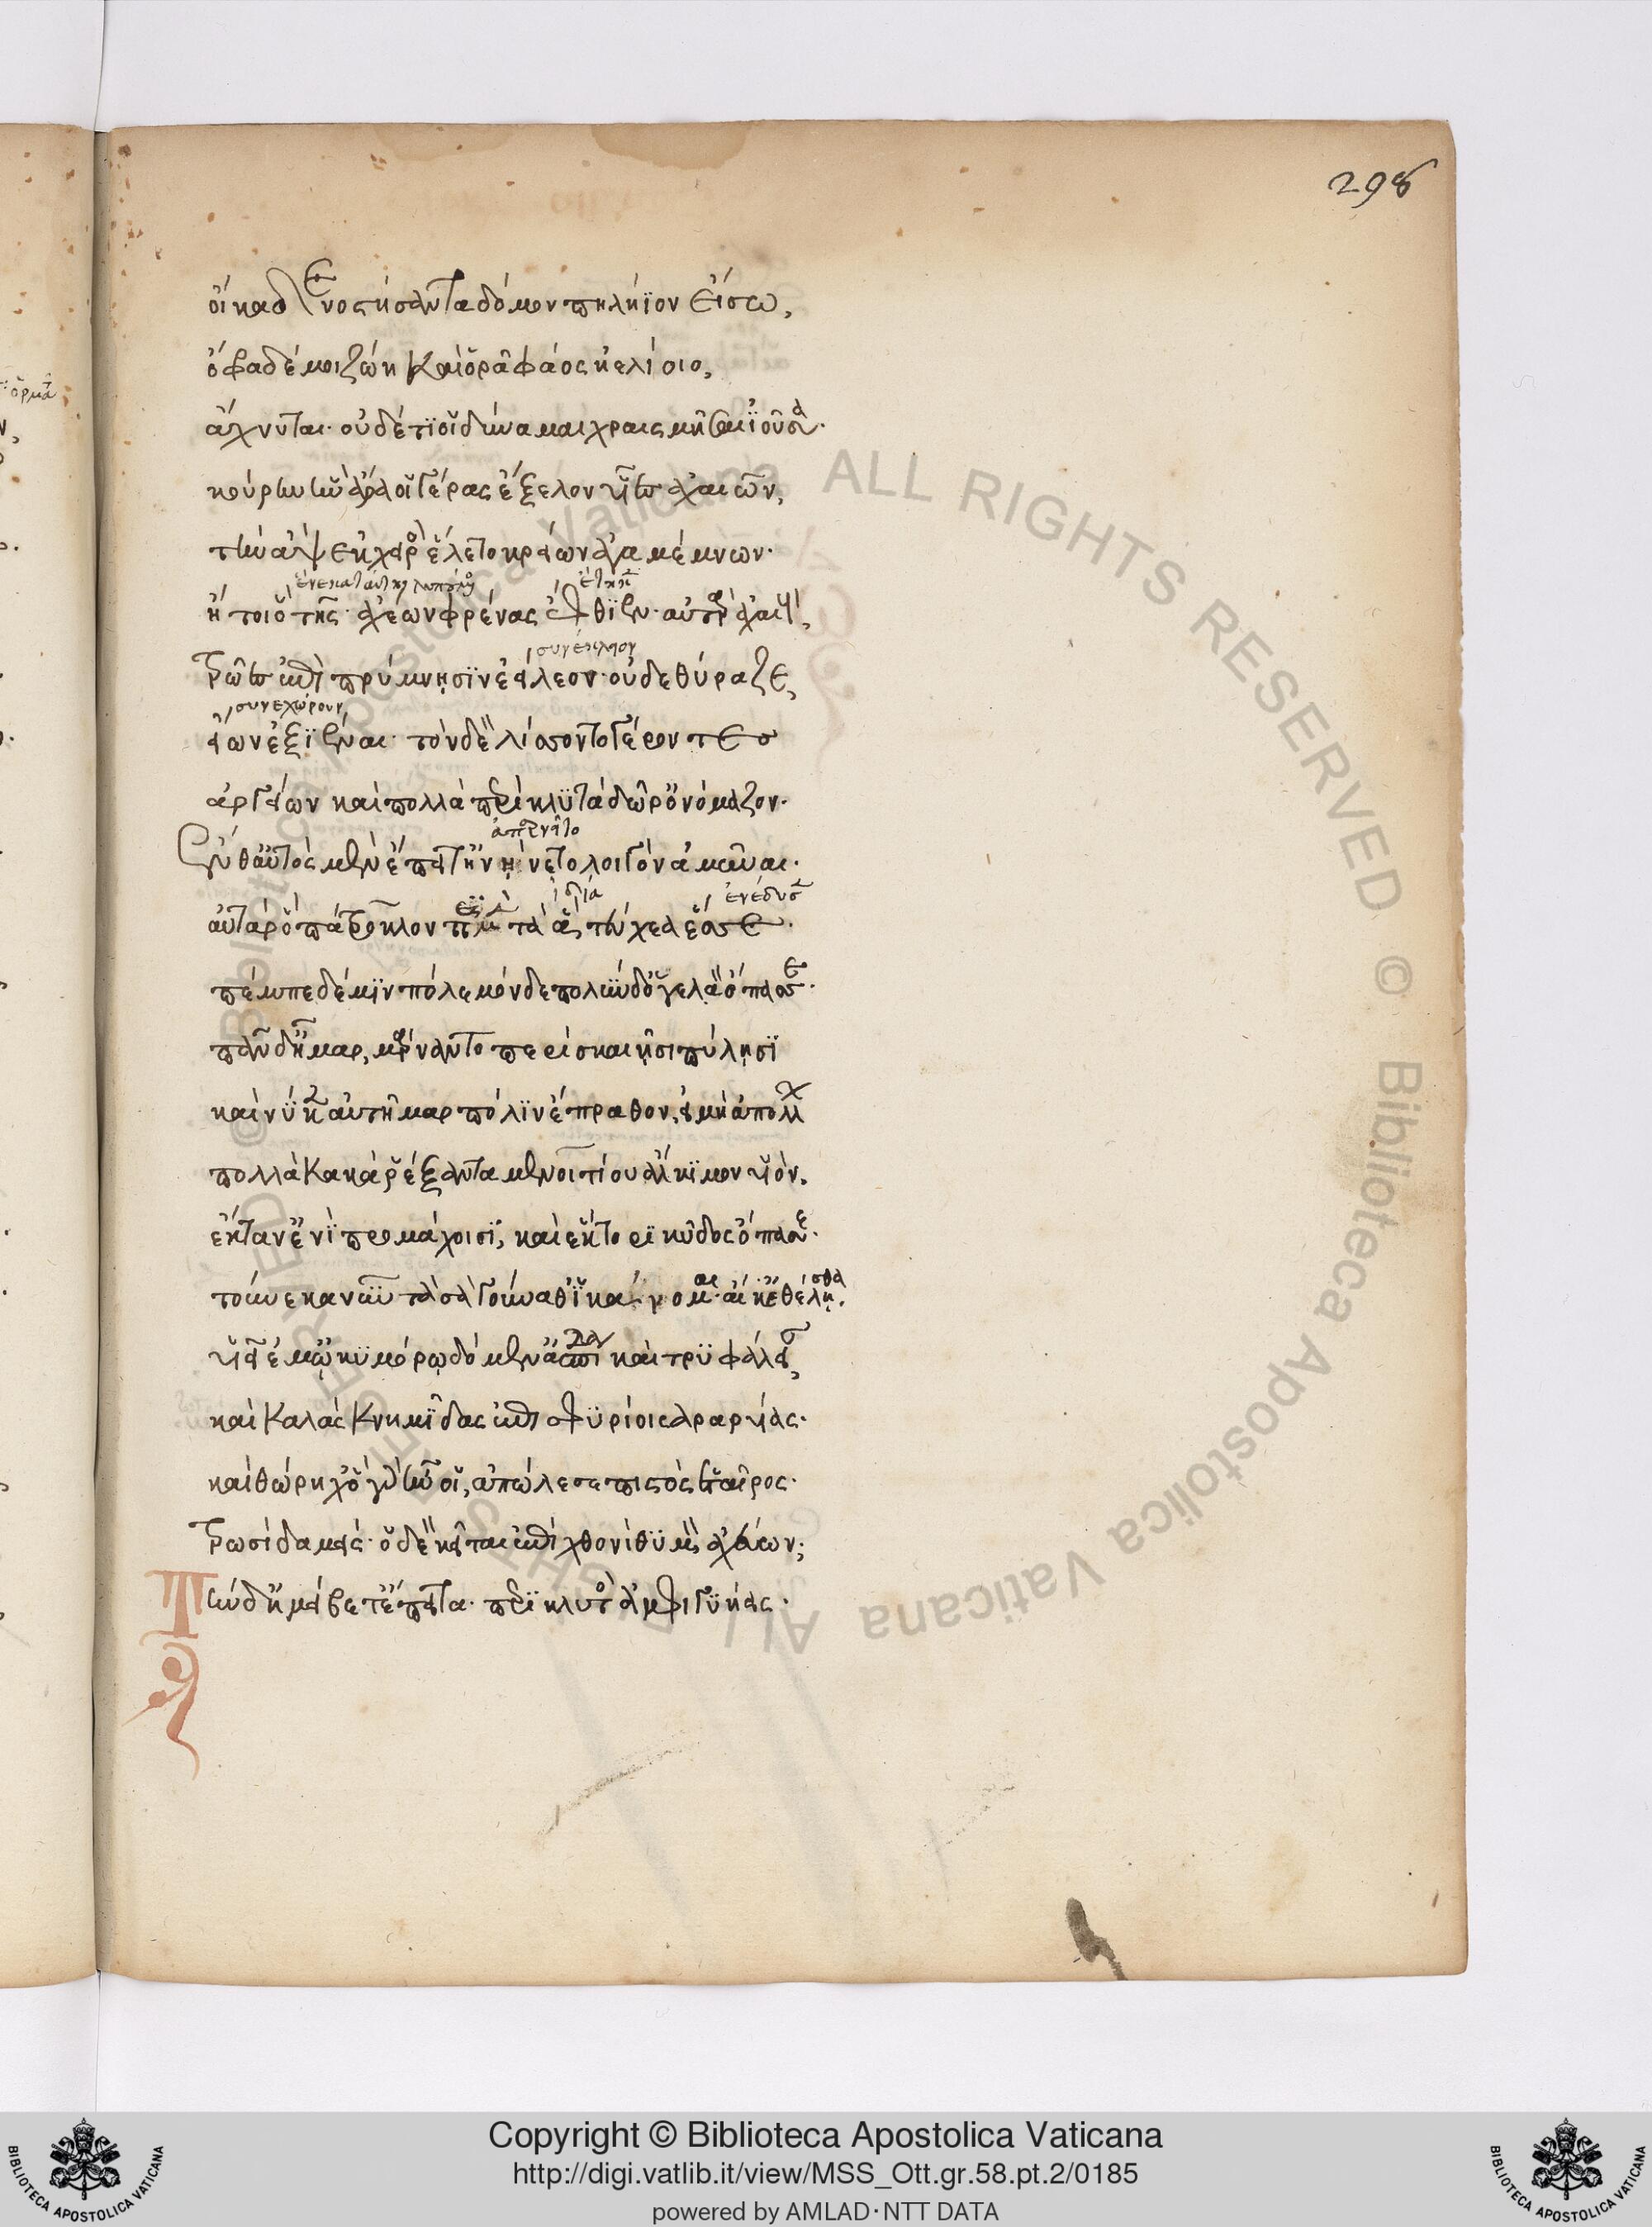 298
οἴκαδε νοστήσαντα δόμον πηλήϊον εἴσω,
ὄφρα δέ μοι ζώη καὶ ὁρᾶ φάος ἠελίοιο,
ἄχνυται· οὐδέ τι οἱ δύναμαι χραισμῆσαι ἰοῦσα·
κούρην ἣν ἄρα οἱ γέρας ἔξελον υἷες ἀχαιῶν,
τὴν ἂψ ἐκ χειρῶν ἕλετο κρείων ἀγαμέμνων·
ἤτοι ὁ τῆς ἀχέων φρένας ἔφθιεν· αὐτὰρ ἀχαιοὺς,
συνέκλειον
τρῶες ἐπὶ πρύμνησιν ἐείλεον· οὐδὲ θύραζε,
συνεχώρουν
εἴων ἐξιέναι· τὸν δὲ λίσσοντο γέροντες
ἀργείων καὶ πολλὰ περικλυτὰ δῶρ' ὀνόμαζον·
ἔνθ' αὐτὸς μὲν ἔπειτ' ἠνήνετο λοιγὸν ἀμῦναι·
αὐτὰρ ὁ πάτροκλον περὶ μὲν τὰ ἃ τεύχεα ἕσσε·
πέμπε δέ μιν πόλεμόνδε πολὺν δ' ἅμα λαὸν ὄπασσε·
πᾶν δ' ἦμαρ, μάρναντο περὶ σκαιῇσι πύλησι
καὶ νύ κεν αὐτῆμαρ πόλιν ἔπραθον, εἰ μὴ ἀπόλλων
πολλὰ κακὰ ῥέξαντα μενοιτίου ἄλκιμον υἱὸν,
ἔκταν' ἐνὶ προμάχοισι, καὶ ἕκτορι κῦδος ὄπασσε·
τοὔνεκα νῦν τὰ σὰ γούναθ' ἱκάνομαι· αἴ κ' ἐθέλησθα
υἱεῖ ἐμῷ ὠκυμόρῳ δόμεν ἀσπίδα καὶ τρυφάλειαν,
καὶ καλὰς κνημῖδας ἐπισφυρίοις ἀραρυίας·
καὶ θώρηχ' ὃ γὰρ ἦν οἱ, ἀπώλεσε πιστὸς ἑταῖρος·
τρωσὶ δαμείς· ὁ δὲ κεῖται ἐπὶ χθονὶ θυμὸν ἀχεύων;
τὴν δ' ἠμείβετ' ἔπειτα περικλυτὸς ἀμφιγυήεις·
ALL RIGHTS RESERVED © Biblioteca Apostolica Vaticana
Copyright © Biblioteca Apostolica Vaticana
http://digi.vatlib.it/view/MSS_Ott.gr.58.pt.2/0185
powered by AMLAD·NTT DATA
BIBLIOTECA APOSTOLICA VATICANA
BIBLIOTECA APOSTOLICA VATICANA